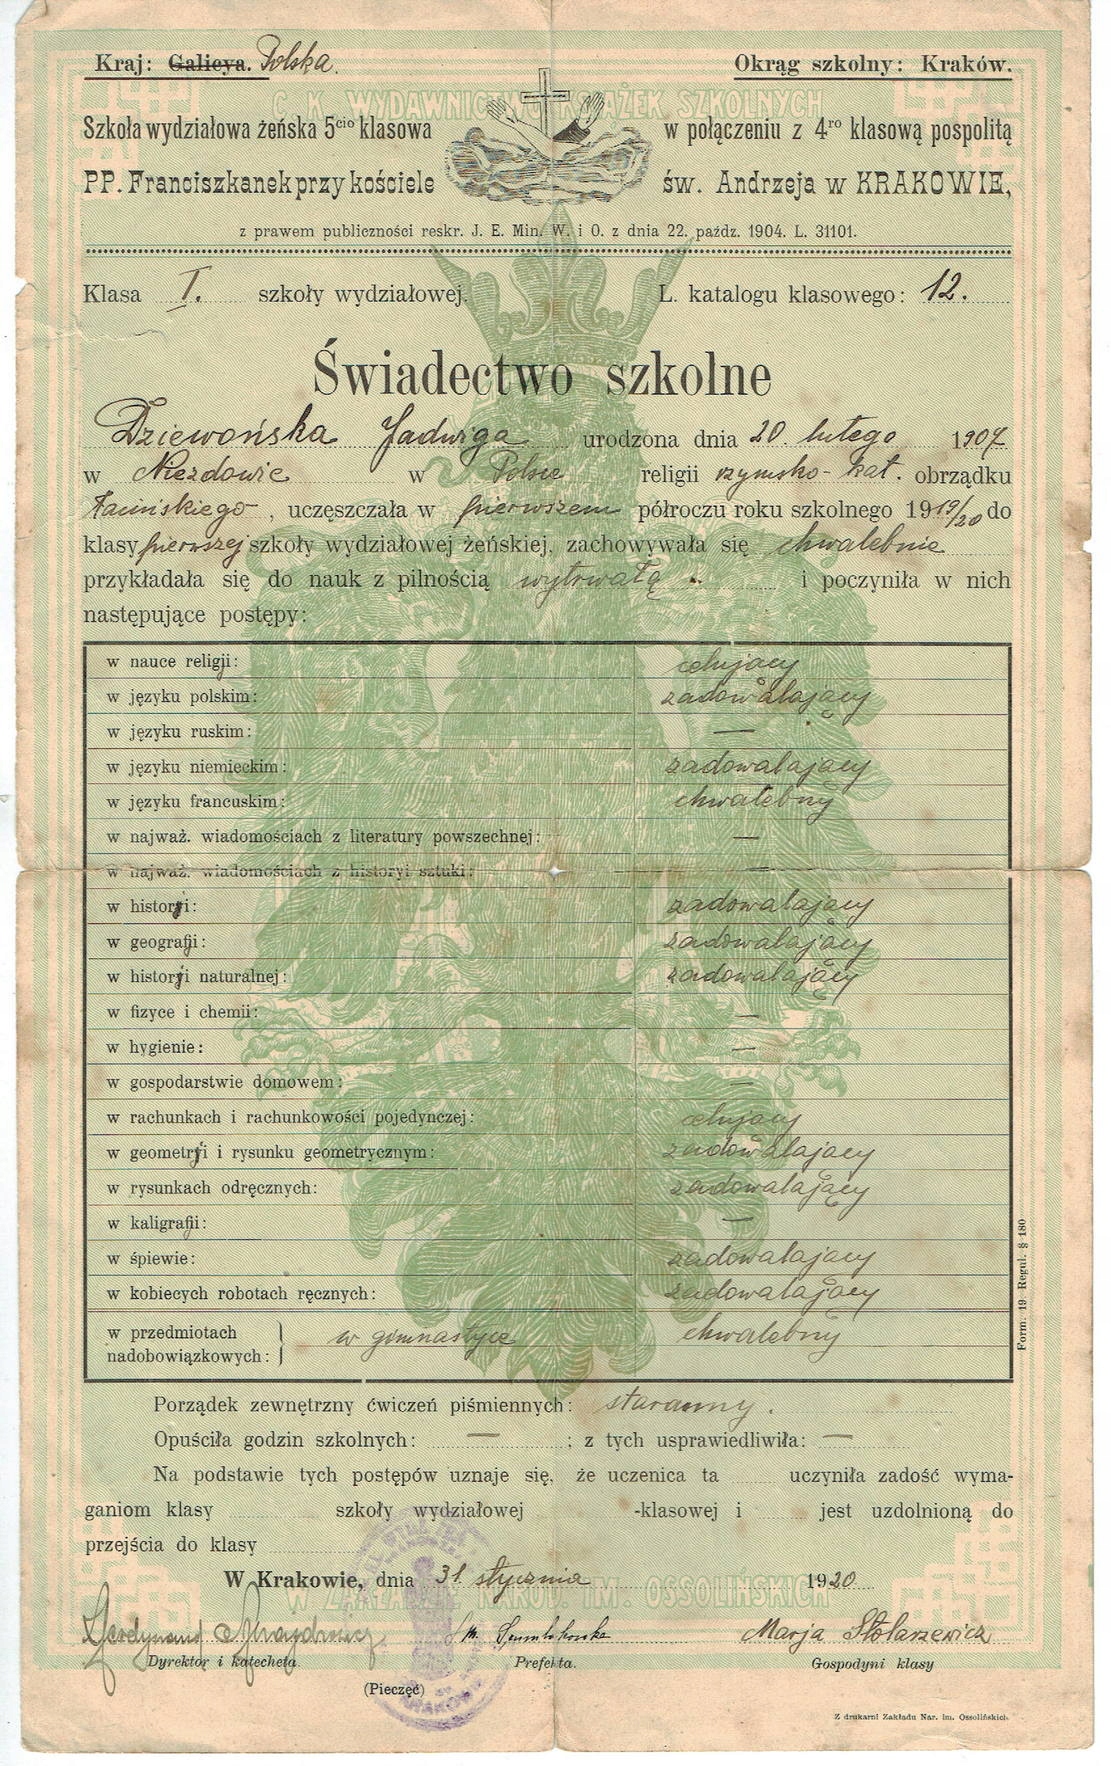 Kraj: Galicya. Polska.
Okrąg szkolny: Kraków.
C. K. WYDAWNICTWO KSIĄŻEK SZKOLNYCH
Szkoła wydziałowa żeńska 5cio klasowa w połączeniu z 4ro klasową pospolitą
PP. Franciszkanek przy kościele św. Andrzeja w KRAKOWIE,
z prawem publiczności reskr. J. E. Min. W. i O. z dnia 22. paźdz. 1904. L. 31101.
Klasa I. szkoły wydziałowej. L. katalogu klasowego: 12.
Świadectwo szkolne
Dziewońska Jadwiga urodzona dnia 20. lutego 1907
w Niezdowie w Polsce religii rzymsko-kat. obrządku
łacińskiego, uczęszczała w pierwszem półroczu roku szkolnego 1919/20 do
klasy pierwszej szkoły wydziałowej żeńskiej, zachowywała się chwalebnie
przykładała się do nauk z pilnością wytrwałą i poczyniła w nich
następujące postępy:
w nauce religji: celujący
w języku polskim: zadowalający
w języku ruskim: —
w języku niemieckim: zadowalający
w języku francuskim: chwalebny
w najważ. wiadomościach z literatury powszechnej: —
w najważ. wiadomościach z historyi sztuki: —
w historji: zadowalający
w geografji: zadowalający
w historji naturalnej: zadowalający
w fizyce i chemii: —
w hygienie: —
w gospodarstwie domowem: —
w rachunkach i rachunkowości pojedynczej: celujący
w geometrji i rysunku geometrycznym: zadowalający
w rysunkach odręcznych: zadowalający
w kaligrafji: —
w śpiewie: zadowalający
w kobiecych robotach ręcznych: zadowalający
w przedmiotach
nadobowiązkowych: w gimnastyce chwalebny
Form. 19 Regul. § 180
Porządek zewnętrzny ćwiczeń piśmiennych: staranny.
Opuściła godzin szkolnych: — ; z tych usprawiedliwiła: —
Na podstawie tych postępów uznaje się, że uczenica ta uczyniła zadość wyma-
ganiom klasy szkoły wydziałowej -klasowej i jest uzdolnioną do
przejścia do klasy
W Krakowie, dnia 31. stycznia 1920.
W ZAKŁADZIE NAROD. IM. OSSOLIŃSKICH
Ferdynand Marja Stolarzewicz
Dyrektor i katecheta. Prefekta. Gospodyni klasy
(Pieczęć)
Z drukarni Zakładu Nar. im. Ossolińskich.